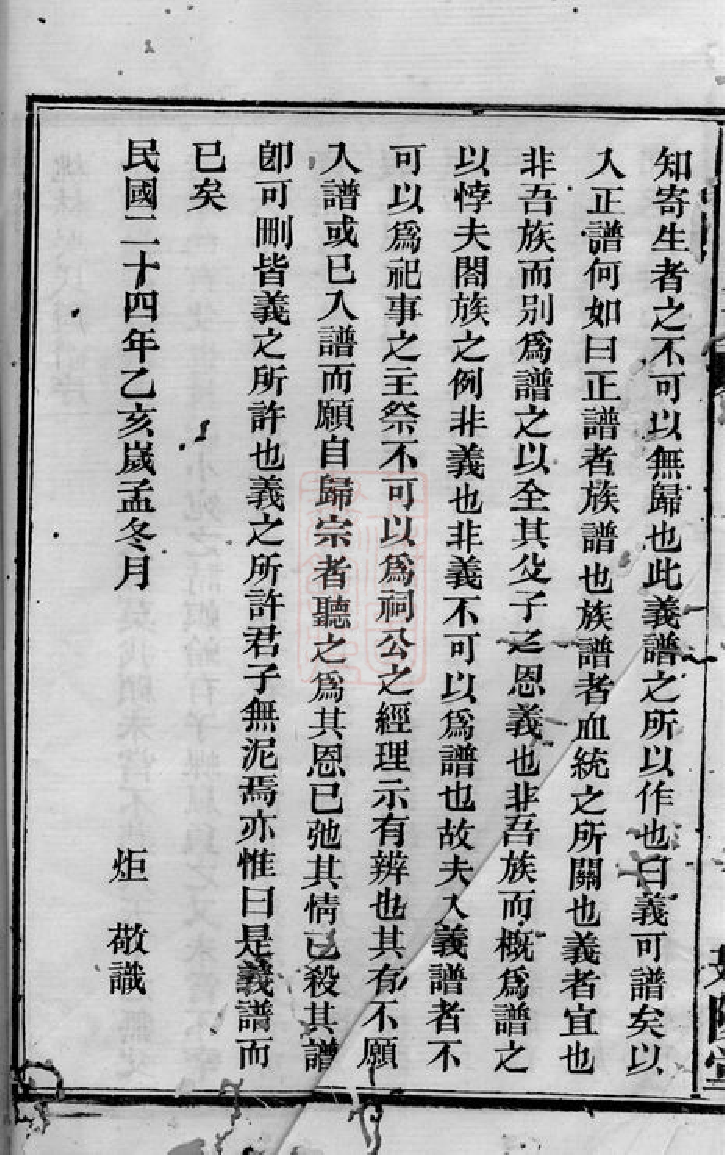 知寄生者之不可以無歸也此義譜之所以作也曰義可譜矣以
入正譜何如曰正譜者族譜也族譜者血統之所關也義者宜也
非吾族而別爲譜之以全其父子之恩義也非吾族而概爲譜之
以悖夫閤族之例非義也非義不可以爲譜也故夫入義譜者不
可以爲祀事之主祭不可以爲祠公之經理示有辨也其有不願
入譜或已入譜而願自歸宗者聽之爲其恩已弛其情已殺其譜
卽可刪皆義之所許也義之所許君子無泥焉亦惟曰是義譜而
已矣
民國二十四年乙亥歲孟冬月
炬 敬識